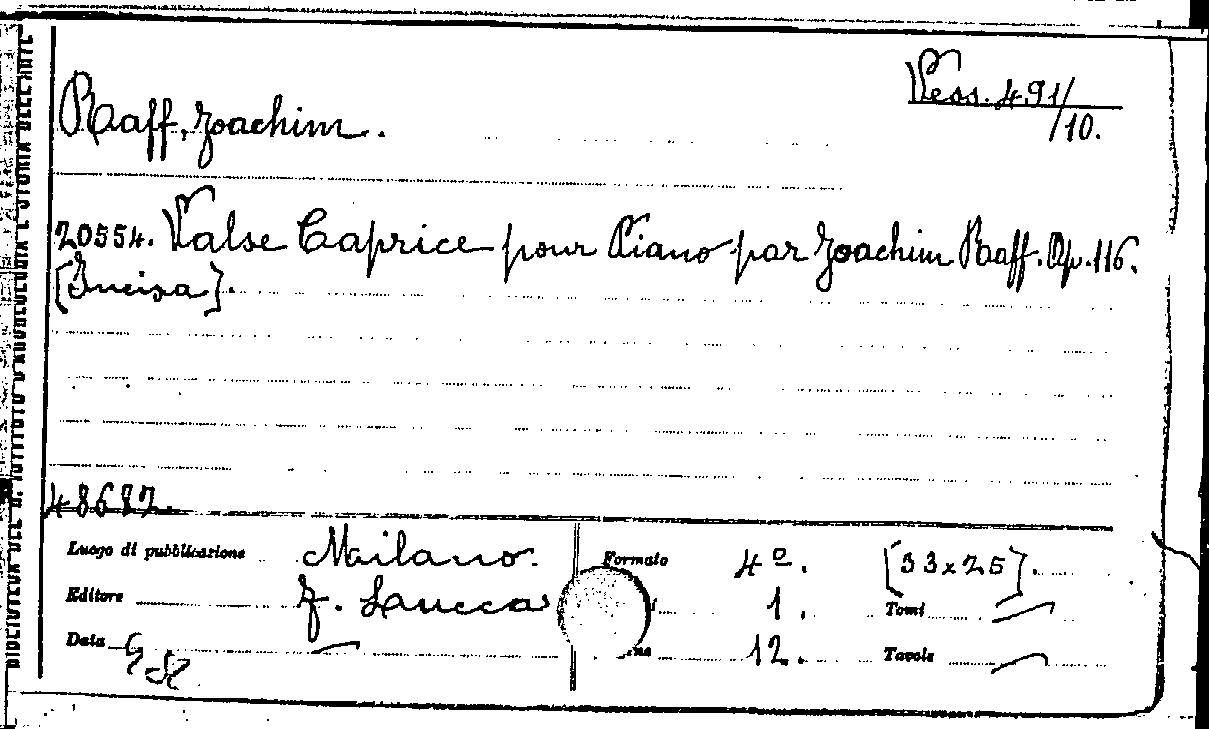 BIBLIOTECA DEL R. ISTITUTO D'ARCHEOLOGIA E STORIA DELL'ARTE
Vess. 491/
/10.
Raff, Joachim.
20554. Valse Caprice pour Piano par Joachim Raff. Op. 116.
[Incisa].
48687
Luogo di pubblicazione Milano. Formato 4º. [33x25].
Editore F. Lucca 1. Tomi —
Data — 12. Tavole —